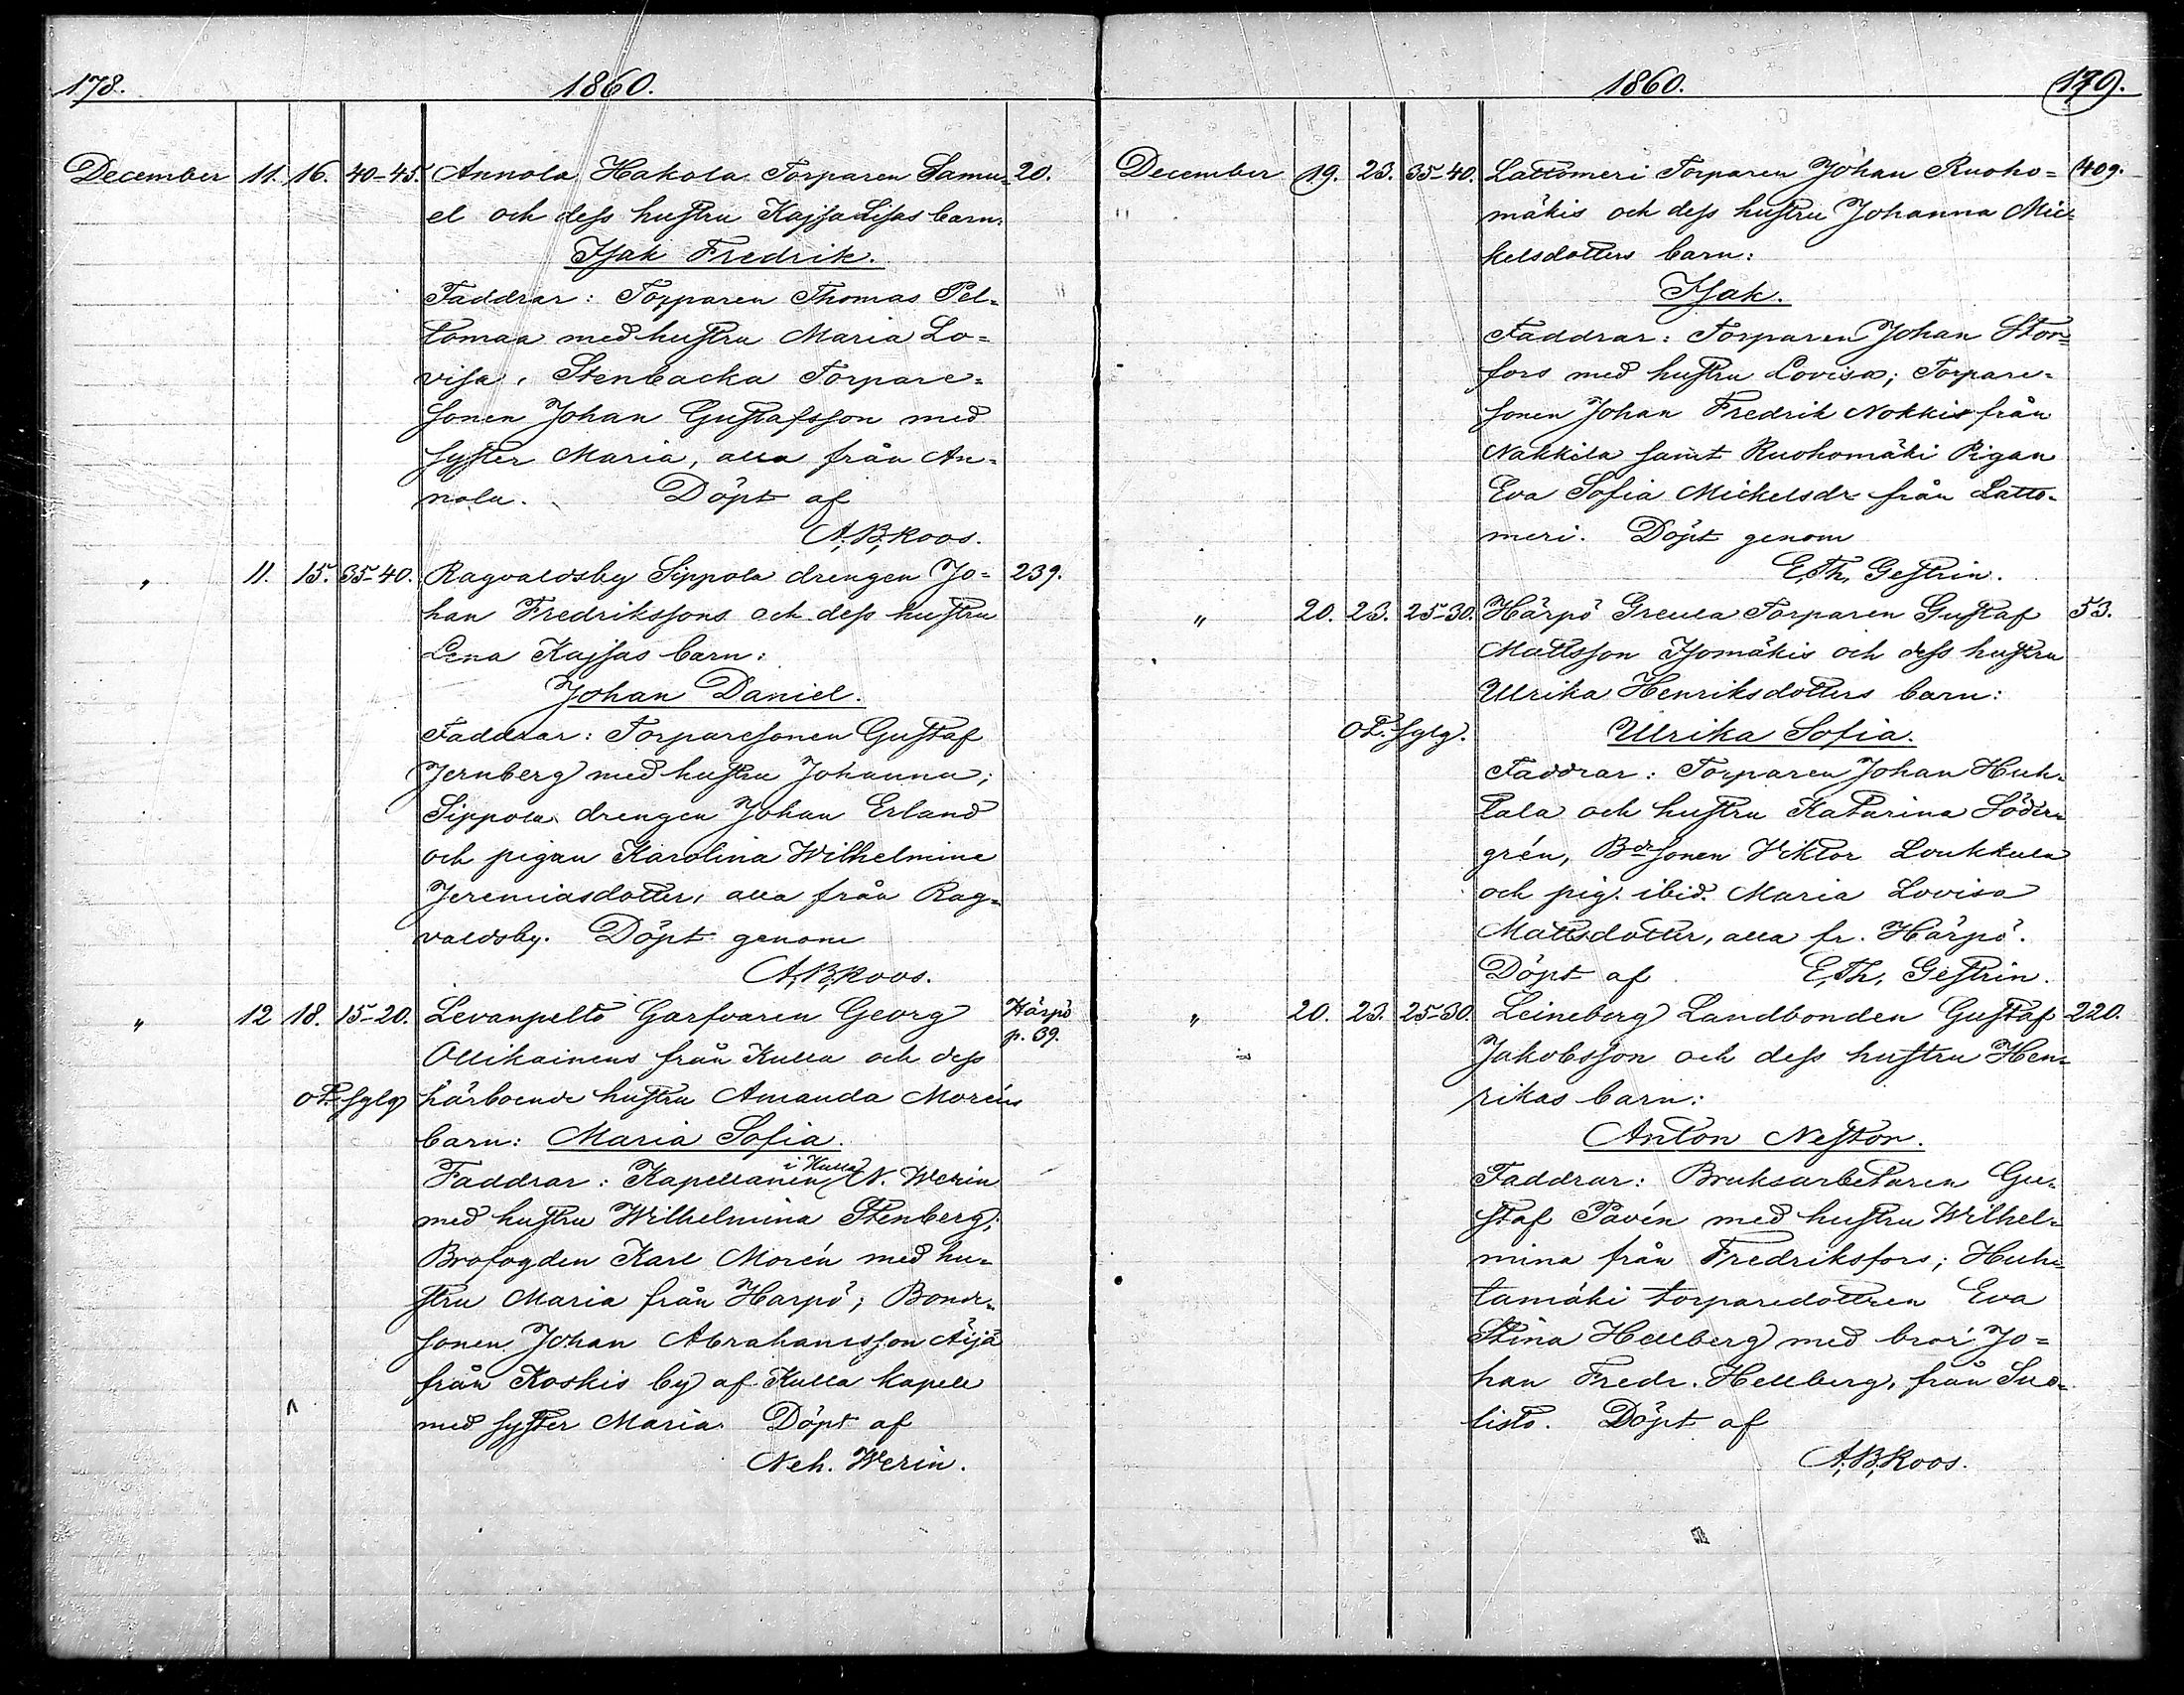 178. 1860.
December 11. 16. 40-45. Annola Hakola Torparen Samu- 20.
el och dess hustru Kajsa Lisas barn:
Isak Fredrik.
Faddrar: Torparen Thomas Pel-
tomaa med hustru Maria Lo-
visa, Stenbacka Torpare-
sonen Johan Gustafsson med
syster Maria, alla från An-
nola. Döpt af
A. B. Roos.
" 11. 15. 35-40. Ragvaldsby Sippola drengen Jo- 239.
han Fredrikssons och dess hustru
Lena Kajsas barn:
Johan Daniel.
Faddrar: Torparesonen Gustaf
Jernberg med hustru Johanna;
Sippola drengen Johan Erland
och pigan Karolina Wilhelmina
Jeremiasdotter, alla från Rag-
valdsby. Döpt genom
A. B. Roos.
" 12 18. 15-20. Levanpelto Garfvaren Georg Härpö
p. 39.
Ollikainens från Kulla och dess
o.F. sylg härboende hustru Amanda Moréns
barn: Maria Sofia.
Faddrar: Kapellanen i Kulla N. Werin
med hustru Wilhelmina Stenberg;
Brofogden Karl Morén med hu-
stru Maria från Harpö; Bonde-
sonen Johan Abrahamsson Äijä
från Koskis by af Kulla kapell
med syster Maria. Döpt af
Neh. Werin.
1860. 179.
December 19. 23. 35-40. Lattomeri Torparen Johan Ruoho- 409.
" mäkis och dess hustru Johanna Mic-
kelsdotters barn:
Isak.
Faddrar: Torparen Johan Stor-
fors med hustru Lovisa; Torpare-
sonen Johan Fredrik Nokkis från
Nakkila samt Ruohomäki Pigan
Eva Sofia Mickelsdr från Latto-
meri. Döpt genom
E. Th. Gestrin.
" 20. 23. 25-30. Härpö Greula Torparen Gustaf 53.
Mattsson Isomäkis och dess hustru
Ulrika Henriksdotters barn:
o.F. sylg. Ulrika Sofia.
Faddrar: Torparen Johan Huh-
tala och hustru Katarina Söder-
grén, Bdesonen Viktor Loukkula
och pig. ibid. Maria Lovisa
Mattsdotter, alla fr. Härpö.
Döpt af E. Th. Gestrin.
" 20. 23. 25-30. Leineberg Landbonden Gustaf 220.
Jakobsson och dess hustru Hen-
rikas barn:
Anton Nestor.
Faddrar: Bruksarbetaren Gu-
staf Pavén med hustru Wilhel-
mina från Fredriksfors; Huh-
tamäki torparedottren Eva
Stina Hellberg med bror Jo-
han Fredr. Hellberg, från Suo-
listo. Döpt af
A. B. Roos.